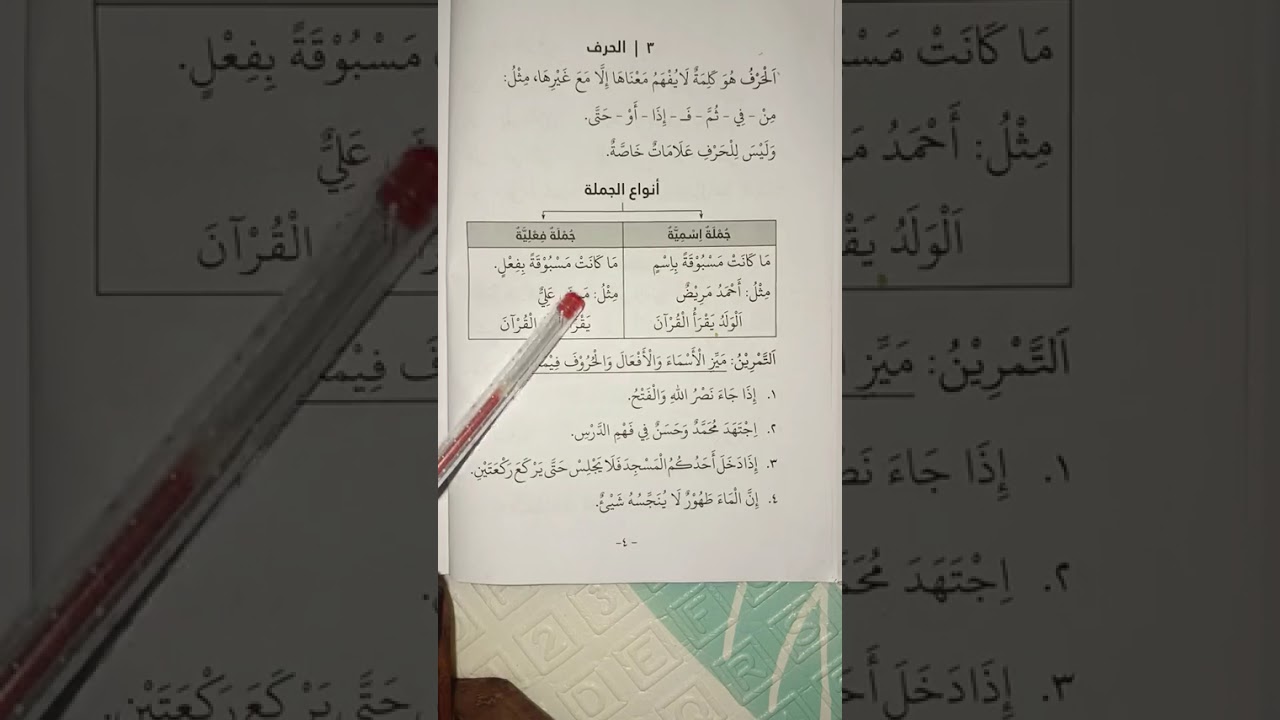 ٣ | الحرف
اَلْحَرْفُ هُوَ كَلِمَةٌ لَايُفْهَمُ مَعْنَاهَا إِلَّا مَعَ غَيْرِهَا، مِثْلُ:
مِنْ - فِي - ثُمَّ - فَـ - إِذَا - أَوْ - حَتَّى.
وَلَيْسَ لِلْحَرْفِ عَلَامَاتٌ خَاصَّةٌ.
أنواع الجملة
جُمْلَةٌ اِسْمِيَّةٌ
مَا كَانَتْ مَسْبُوْقَةٌ بِاِسْمٍ
مِثْلُ: أَحْمَدُ مَرِيْضٌ
اَلْوَلَدُ يَقْرَأُ الْقُرْآنَ
جُمْلَةٌ فِعْلِيَّةٌ
مَا كَانَتْ مَسْبُوْقَةً بِفِعْلٍ.
مِثْلُ: عَلِيٌّ
الْقُرْآنَ
اَلتَّمْرِيْنُ: مَيِّزِ الْأَسْمَاءَ وَالْأَفْعَالَ وَالْحُرُوْفَ
١. إِذَا جَاءَ نَصْرُ اللهِ وَالْفَتْحُ.
٢. اِجْتَهَدَ مُحَمَّدٌ وَحَسَنٌ فِي فَهْمِ الدَّرْسِ.
٣. إِذَا دَخَلَ أَحَدُكُمُ الْمَسْجِدَ فَلَا يَجْلِسْ حَتَّى يَرْكَعَ رَكْعَتَيْنِ.
٤. إِنَّ الْمَاءَ طَهُوْرٌ لَا يُنَجِّسُهُ شَيْئٌ.
-٤-